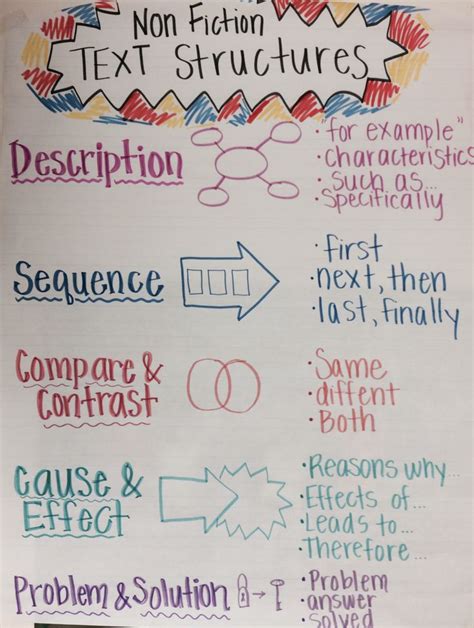 Non Fiction
TEXT Structures
Description
• "for example"
• characteristics
• such as...
• Specifically
Sequence
• first
• next, then
• last, finally
Compare &
Contrast
• Same
• diffent
• Both
Cause &
Effect
• Reasons why...
• Effects of...
• Leads to...
• Therefore...
Problem & Solution
• Problem
• answer
• solved